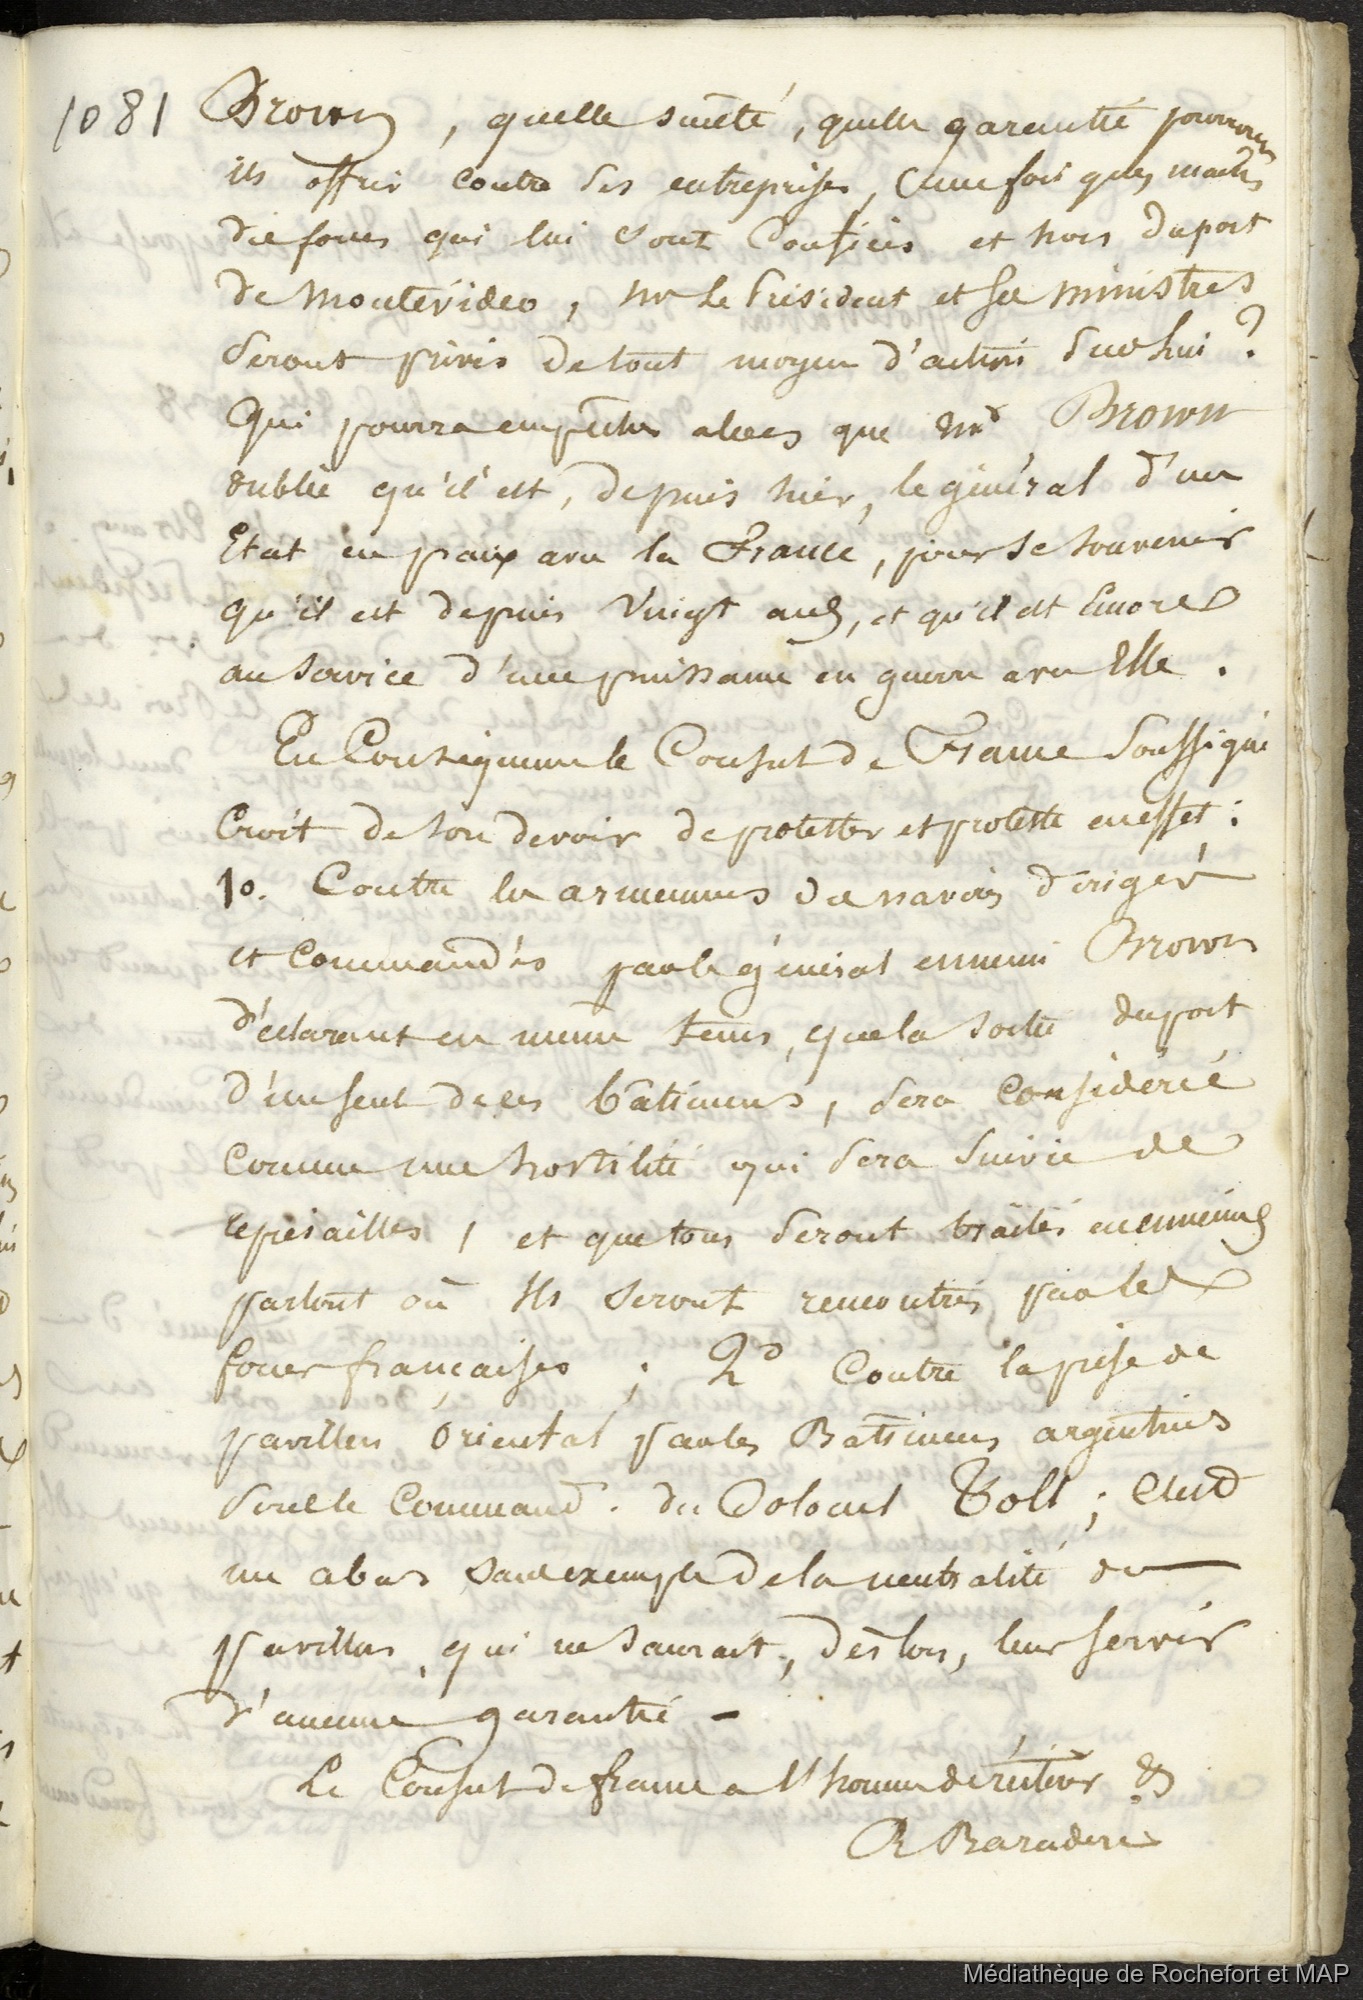 1081 Brown, quelle sureté, quelle garantie pourront
ils offrir contre ses entreprises, une fois que, maitre
des forces qui lui sont confiées et hors du port
de Montévideo, Mr le Président et ses ministres
seront privés de tout moyen d'action sur lui ?
Qui pourra empêcher alors que Mr Brown
oublie qu'il est, depuis hier, le général d'un
Etat en paix avec la France, pour se souvenir
qu'il est depuis vingt ans, et qu'il est Encore
au service d'une puissance en guerre avec Elle.
En Conséquence le Consul de France soussigné
Croit de son devoir de protester et proteste en effet :
1o. Contre les armemens de navires dirigés
et Commandés par le général ennemi Brown
déclarant en même tems, que la sortie du port
d'un seul de ces bâtimens, sera considérée
comme une hostilité qui sera suivie de
represailles, et que tous seront traités en ennemis
partout où Ils seront rencontrés par les
forces françaises ; 2o Contre la prise de
pavillon Oriental par les Bâtimens argentins
sous le command. du Colonel Toll ; C'est
un abus sans exemple de la neutralité du
pavillon, qui ne saurait, dès lors, leur servir
d'aucune garantie -
Le Consul de france a l'honneur de réitérer &
R Baradere
Médiathèque de Rochefort et MAP